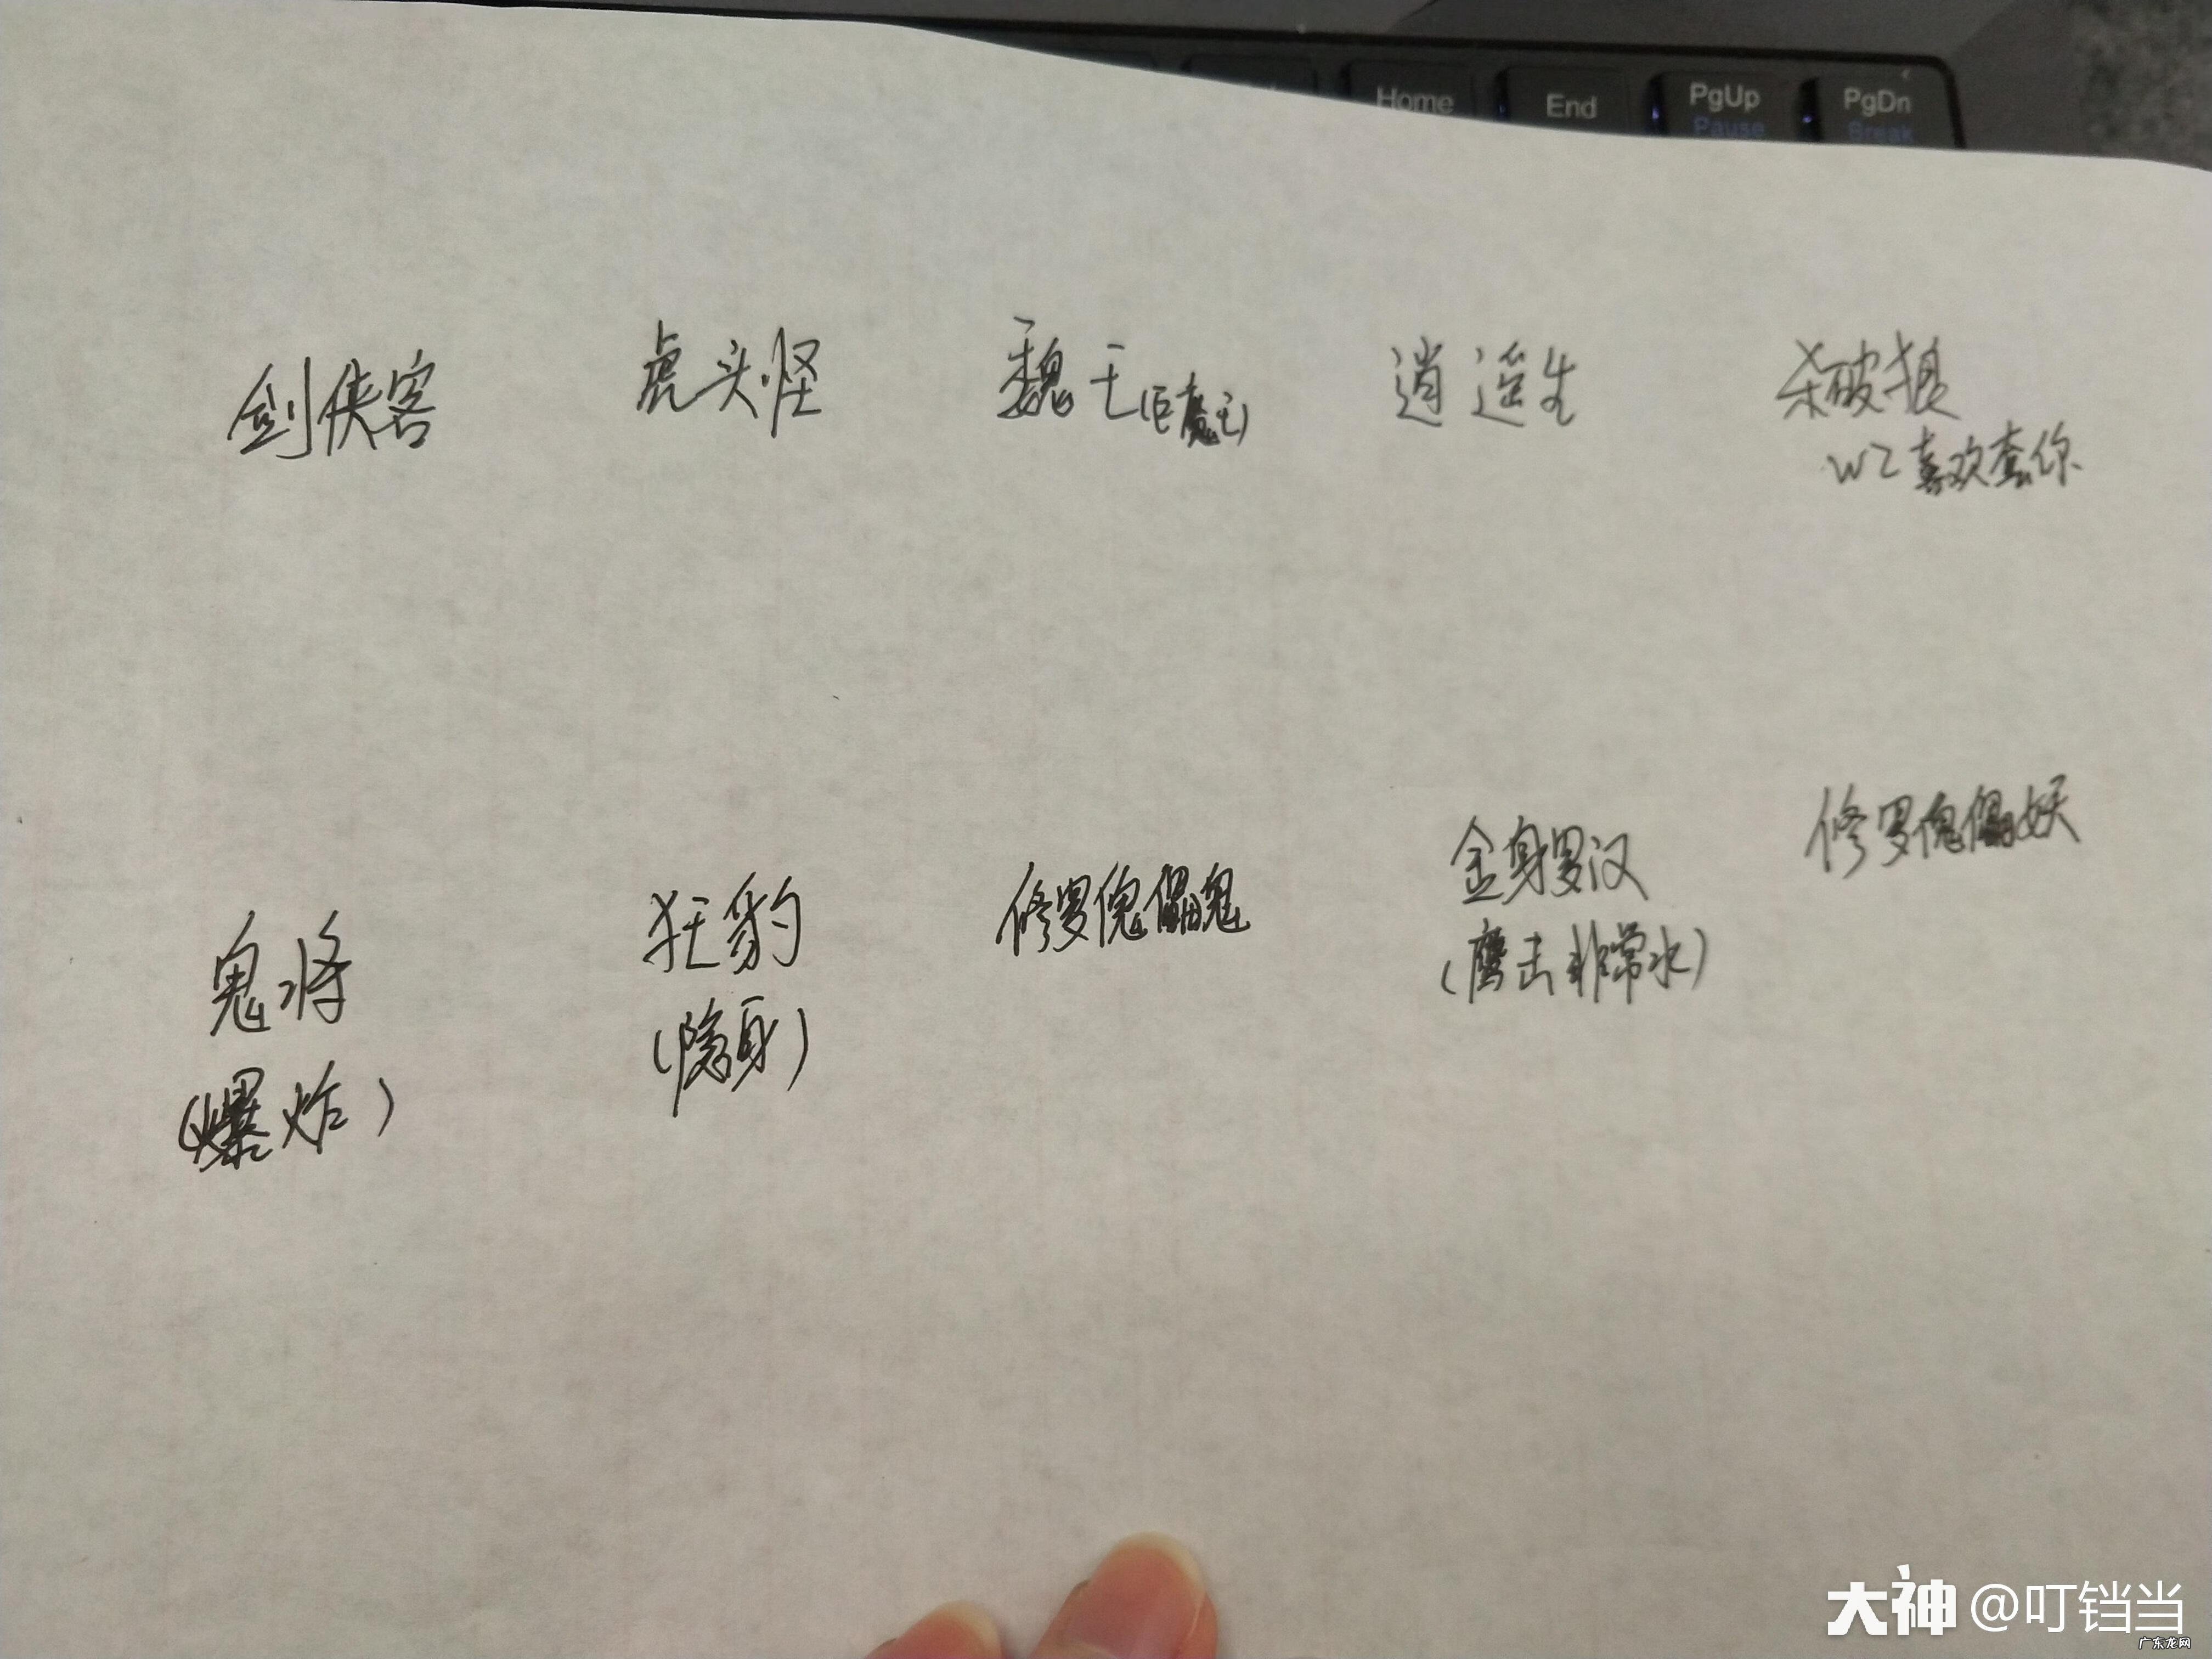 Home End PgUp PgDn
Pause Break
剑侠客 虎头怪 魏王(巨魔王) 逍遥生 杀破狼
WZ喜欢查你
鬼将 狂豹 修罗傀儡鬼 金身罗汉 修罗傀儡妖
(爆炸) (隐身) (鹰击非常水)
大神 @叮铛当
广东龙网